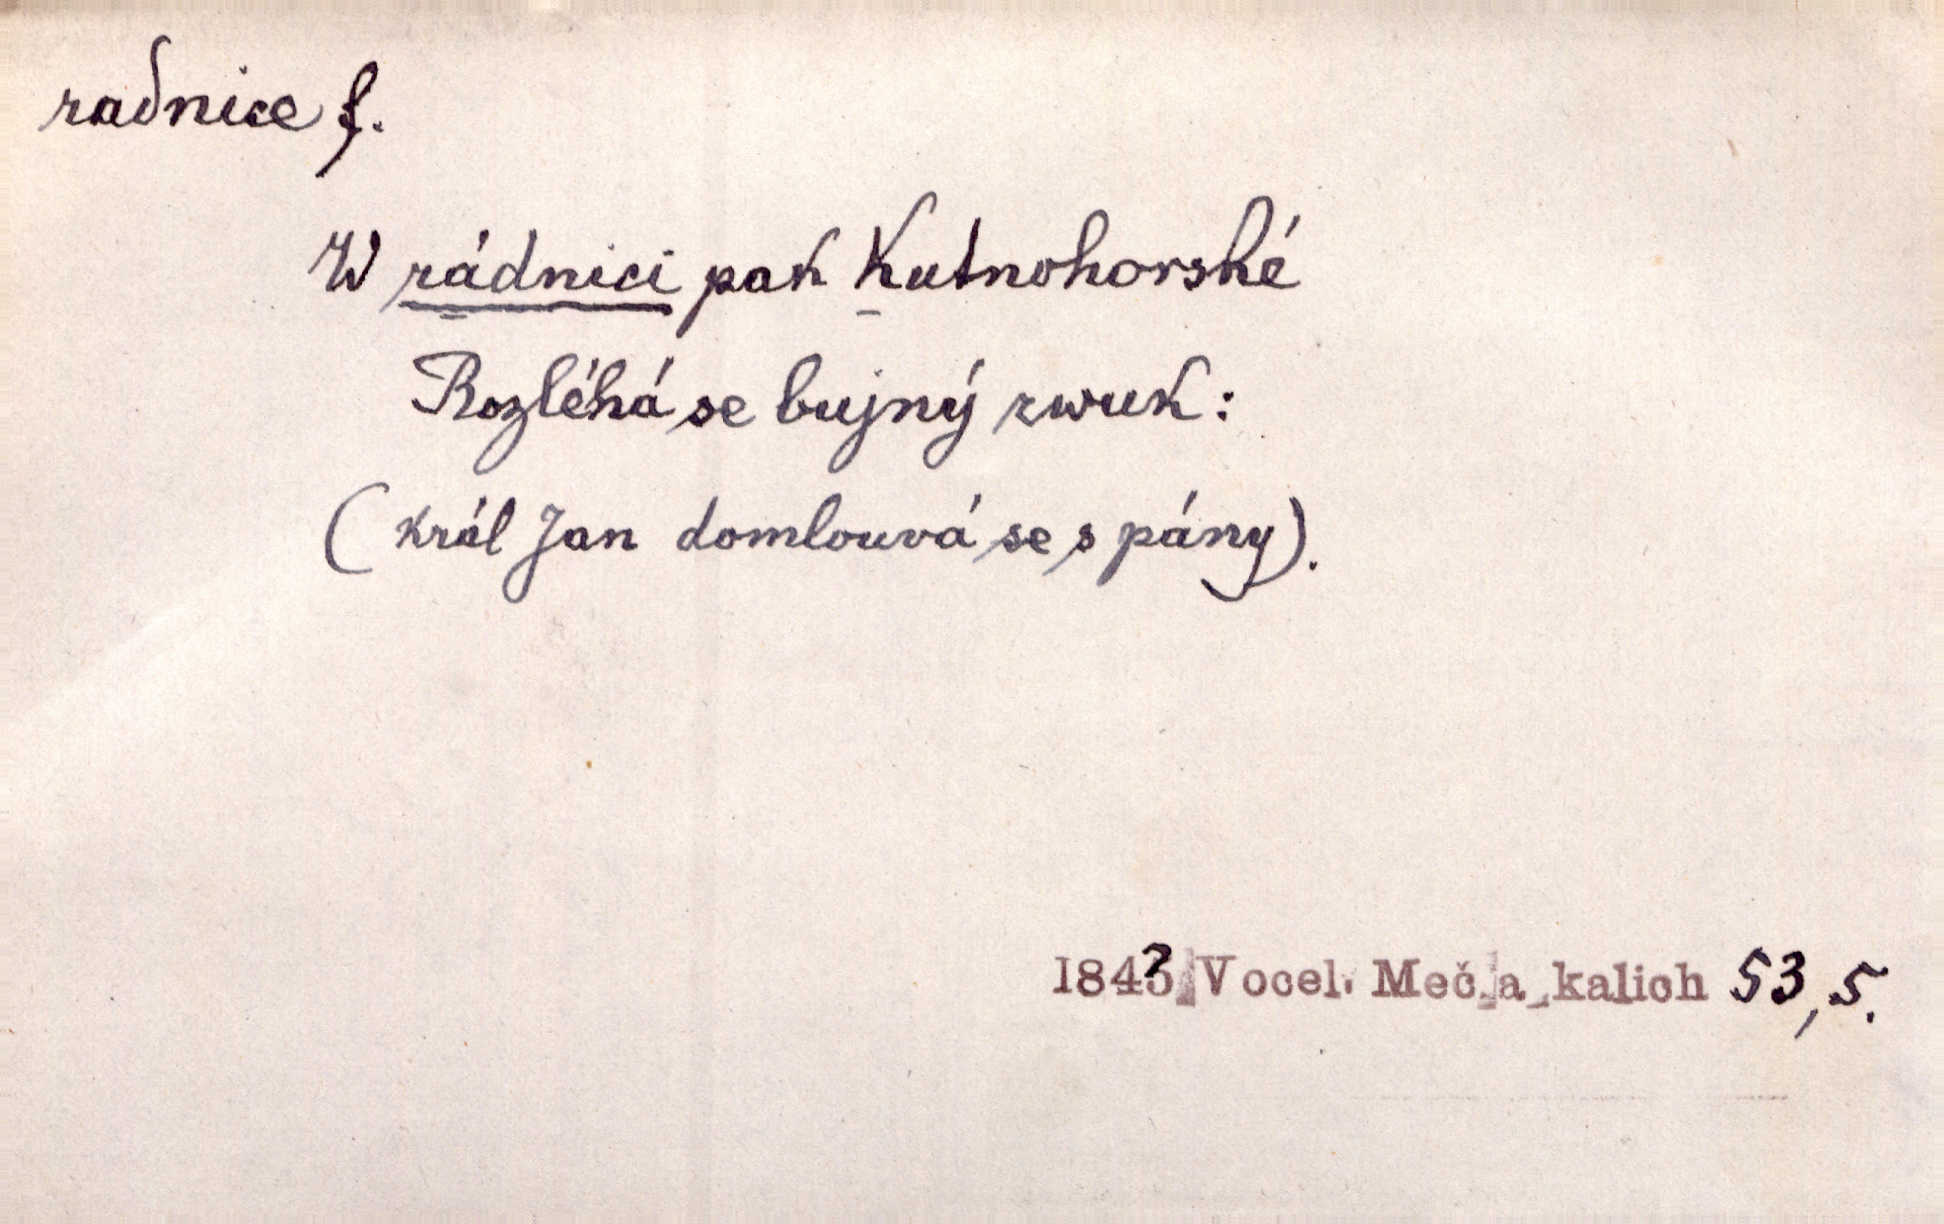 radnice f.
W rádnici pak Kutnohorské
Rozléhá se bujný zwuk:
(Král Jan domlouvá se s pány).
1843 Vocel. Meč a kalich 53,5.